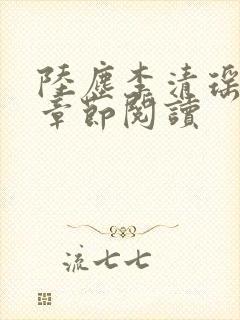 陸塵李清瑤
章節閱讀
流七七